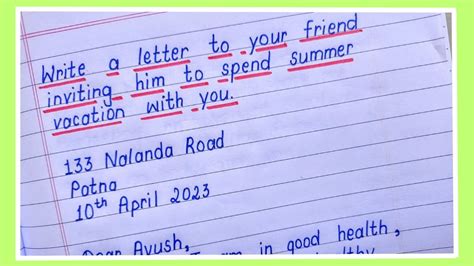 Write a letter to your friend
inviting him to spend summer
vacation with you.
133 Nalanda Road
Patna
10th April 2023
Dear Ayush,
I am in good health,